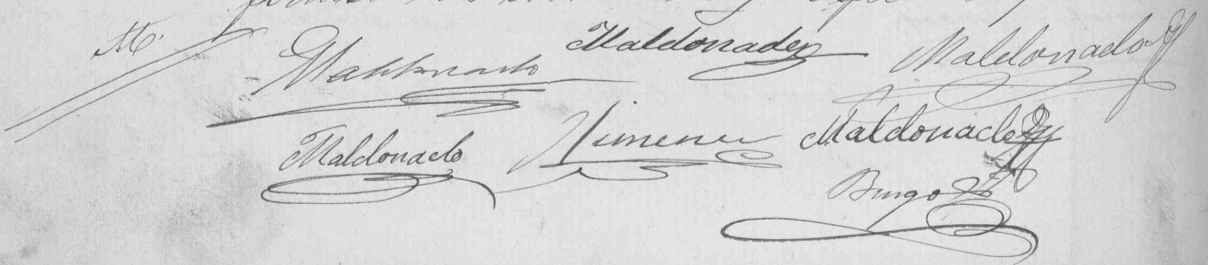 M. Maldonado Maldonado Maldonado
Maldonado Jimenez Maldonado
Burgo